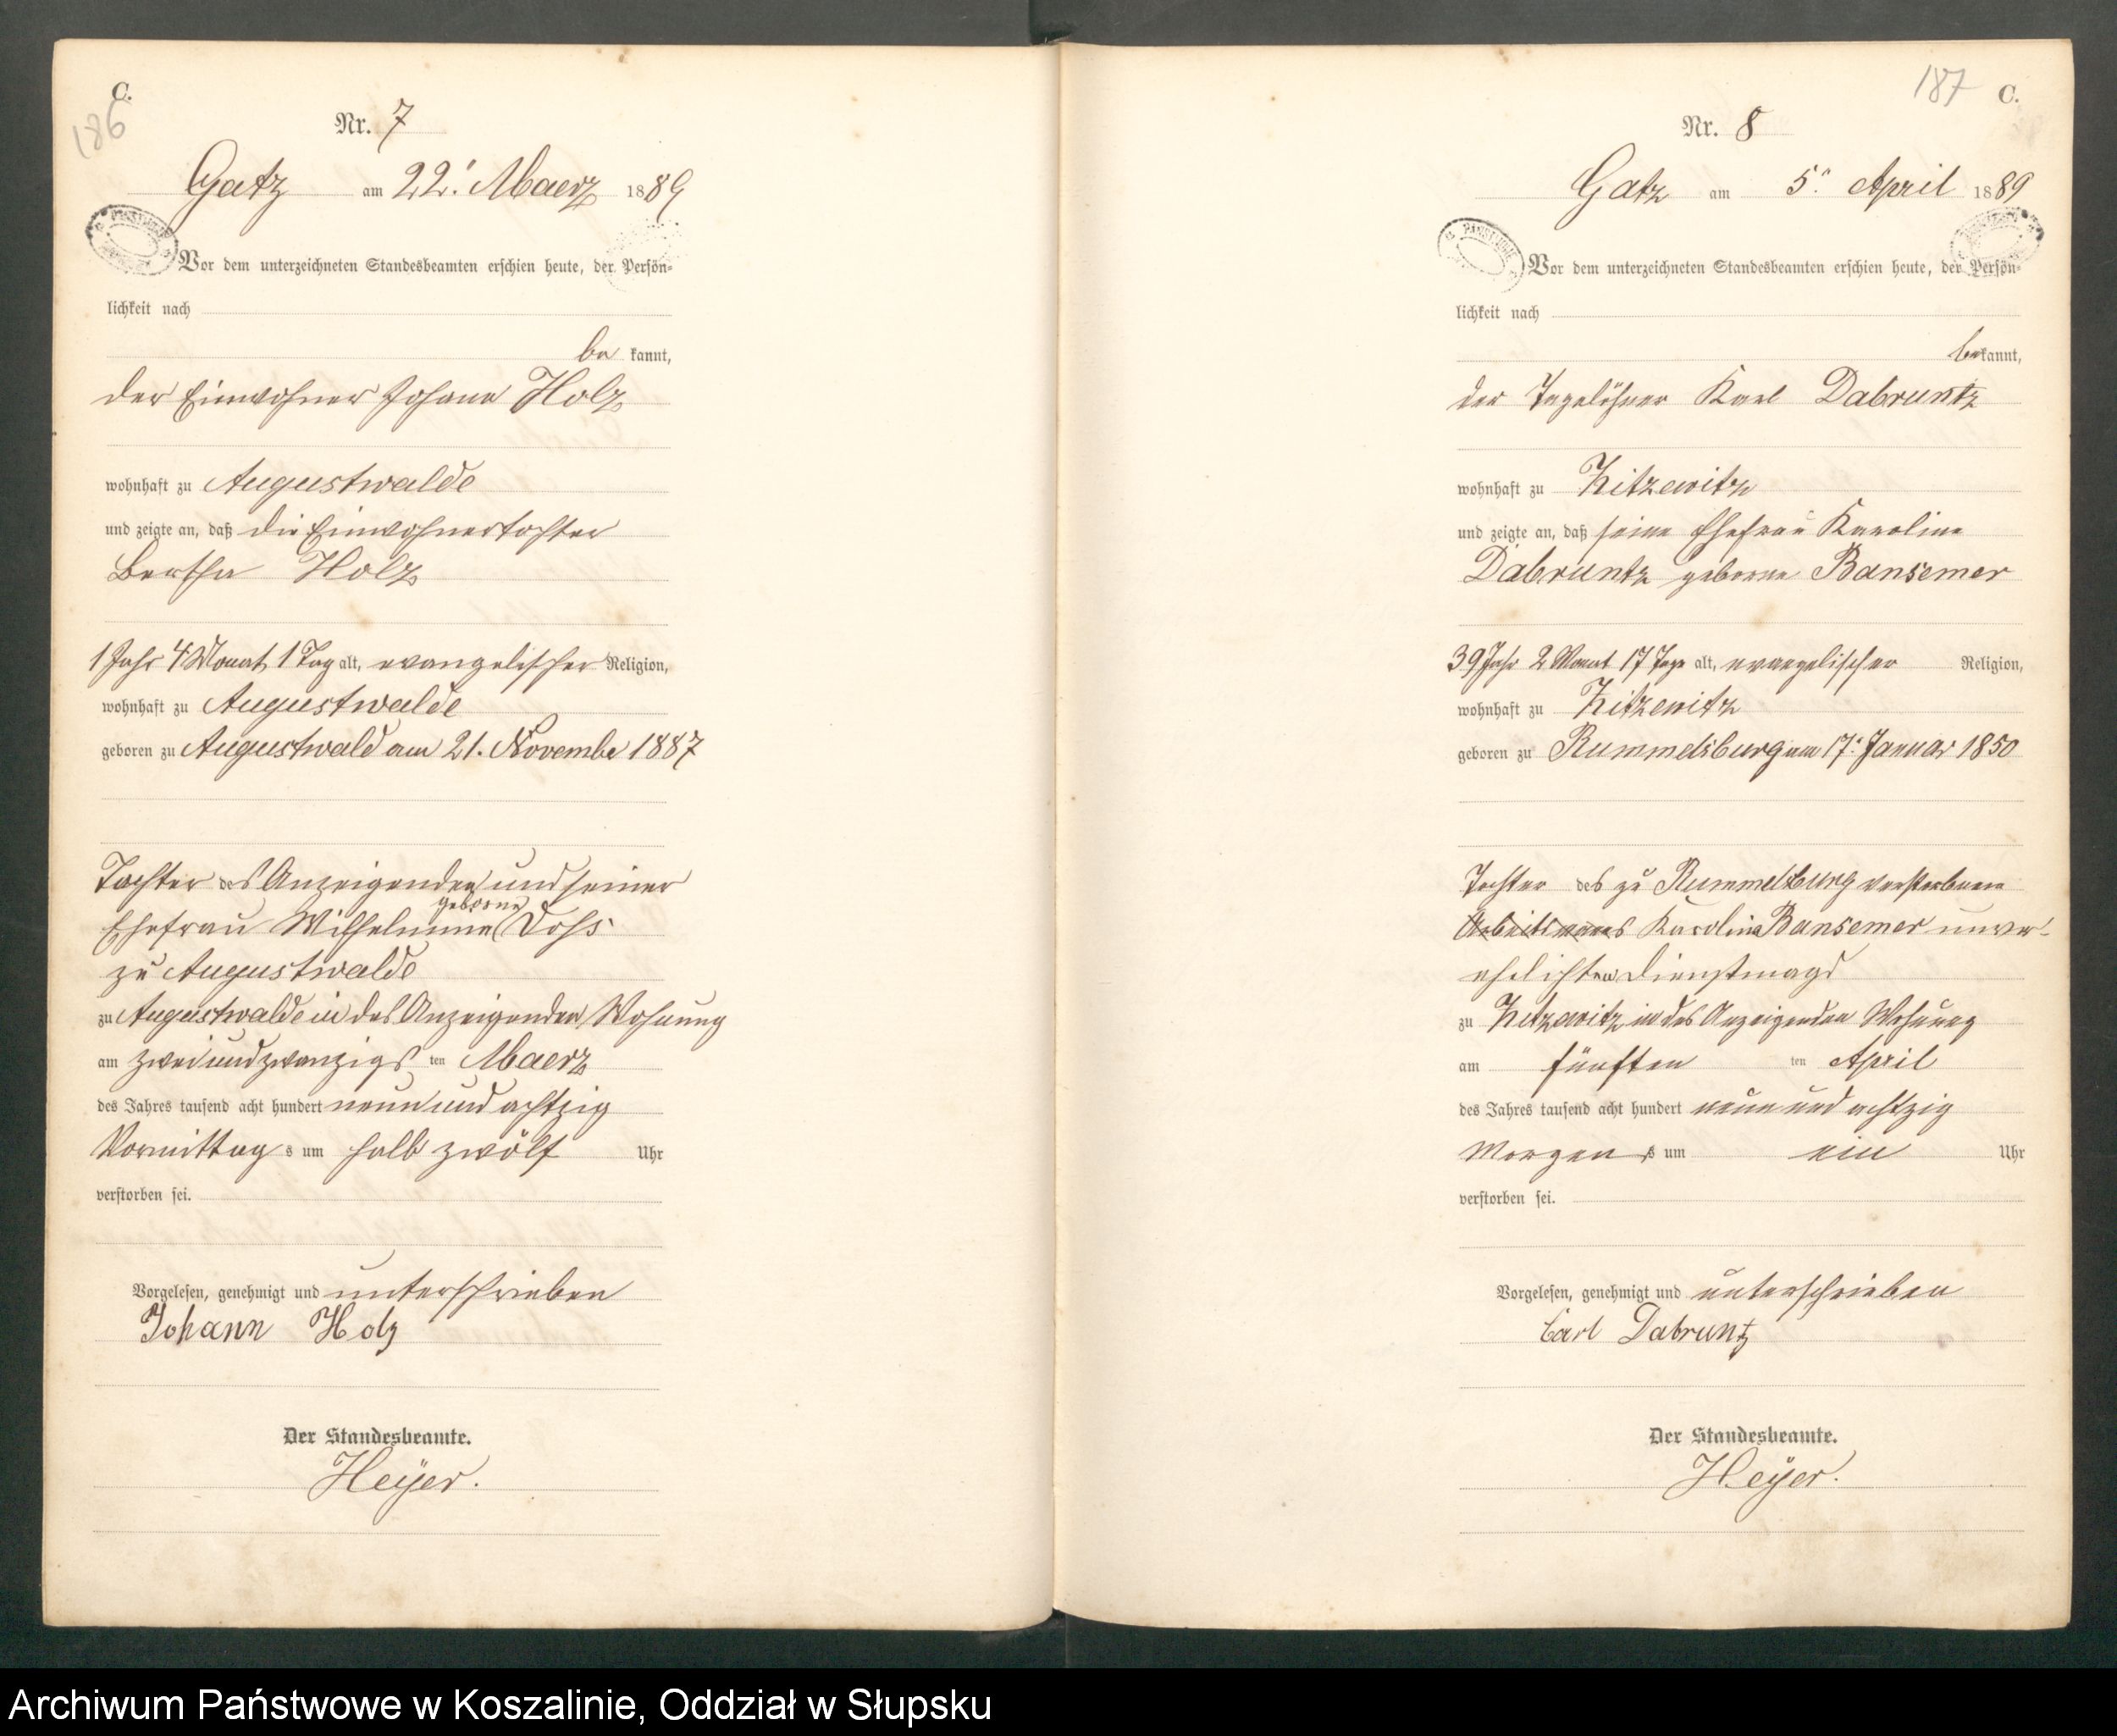 C.
186
Nr. 7
Gatz am 22. Maerz 1889
Vor dem unterzeichneten Standesbeamten erschien heute, der Persön-
lichkeit nach
be kannt,
der Einwohner Johann Holz
wohnhaft zu Augustwalde
und zeigte an, daß die Einwohnertochter
Bertha Holz
1 Jahr 4 Monat 1 Tag alt, evangelischer Religion,
wohnhaft zu Augustwalde
geboren zu Augustwald am 21. November 1887
Tochter des Anzeigenden und seiner
Ehefrau Wilhelmine geborne
zu Augustwalde
zu Augustwalde in des Anzeigenden Wohnung
am zweiundzwanzigs ten Maerz
des Jahres tausend acht hundert neunundachtzig
Vormittag s um halb zwölf Uhr
verstorben sei.
Vorgelesen, genehmigt und unterschrieben
Johann Holz
Der Standesbeamte.
Heyer.
187 C.
Nr. 8
Gatz am 5. April 1889
Vor dem unterzeichneten Standesbeamten erschien heute, der Persön-
lichkeit nach
bekannt,
der Tagelöhner Karl Dabruntz
wohnhaft zu Zitzewitz
und zeigte an, daß seine Ehefrau Karoline
Dabruntz geborne Bansemer
39 Jahr 2 Monat 17 Tage alt, evangelischer Religion,
wohnhaft zu Zitzewitz
geboren zu Rummelsburg am 17. Januar 1850
Tochter des zu Rummelsburg verstorbenen
Arbeitsmanns Karoline Bansemer unver-
ehelichten Dienstmagd
zu Zitzewitz in des Anzeigenden Wohnung
am fünften ten April
des Jahres tausend acht hundert neun und achtzig
Morgen s um ein Uhr
verstorben sei.
Vorgelesen, genehmigt und unterschrieben
Carl Dabruntz
Der Standesbeamte.
Heyer.
Archiwum Państwowe w Koszalinie, Oddział w Słupsku